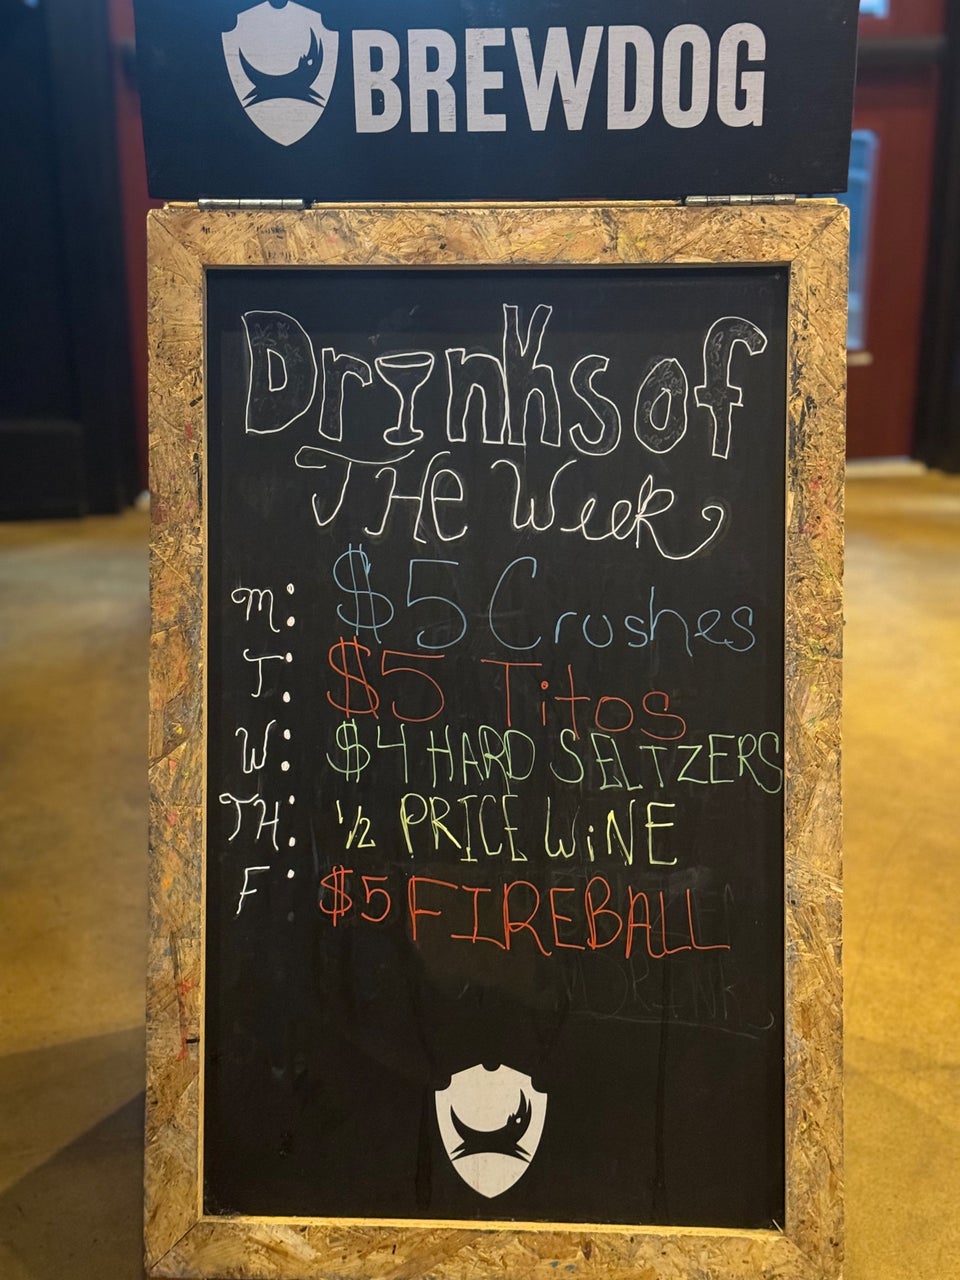 BREWDOG
Drinks of
The Week
M: $5 Crushes
T: $5 Titos
W: $4 HARD SELTZERS
TH: 1/2 PRICE WiNE
F: $5 FIREBALL
DRINK